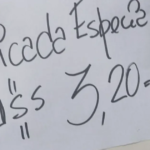 icada Especia
"SS" 3,20-